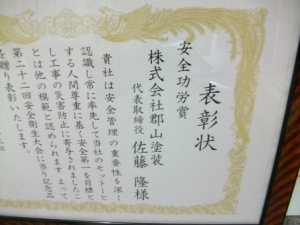 表彰状
安全功労賞
株式会社郡山塗装
代表取締役 佐藤 隆様
貴社は安全管理の重要性を深く
認識し常に率先して当社のモットーと
する人間尊重に基く安全第一を目標と
し工事の災害防止に寄与されましたこ
とは他の模範と認められます よって
第二十二回安全衛生大会に当り記念品
を贈り表彰いたします。